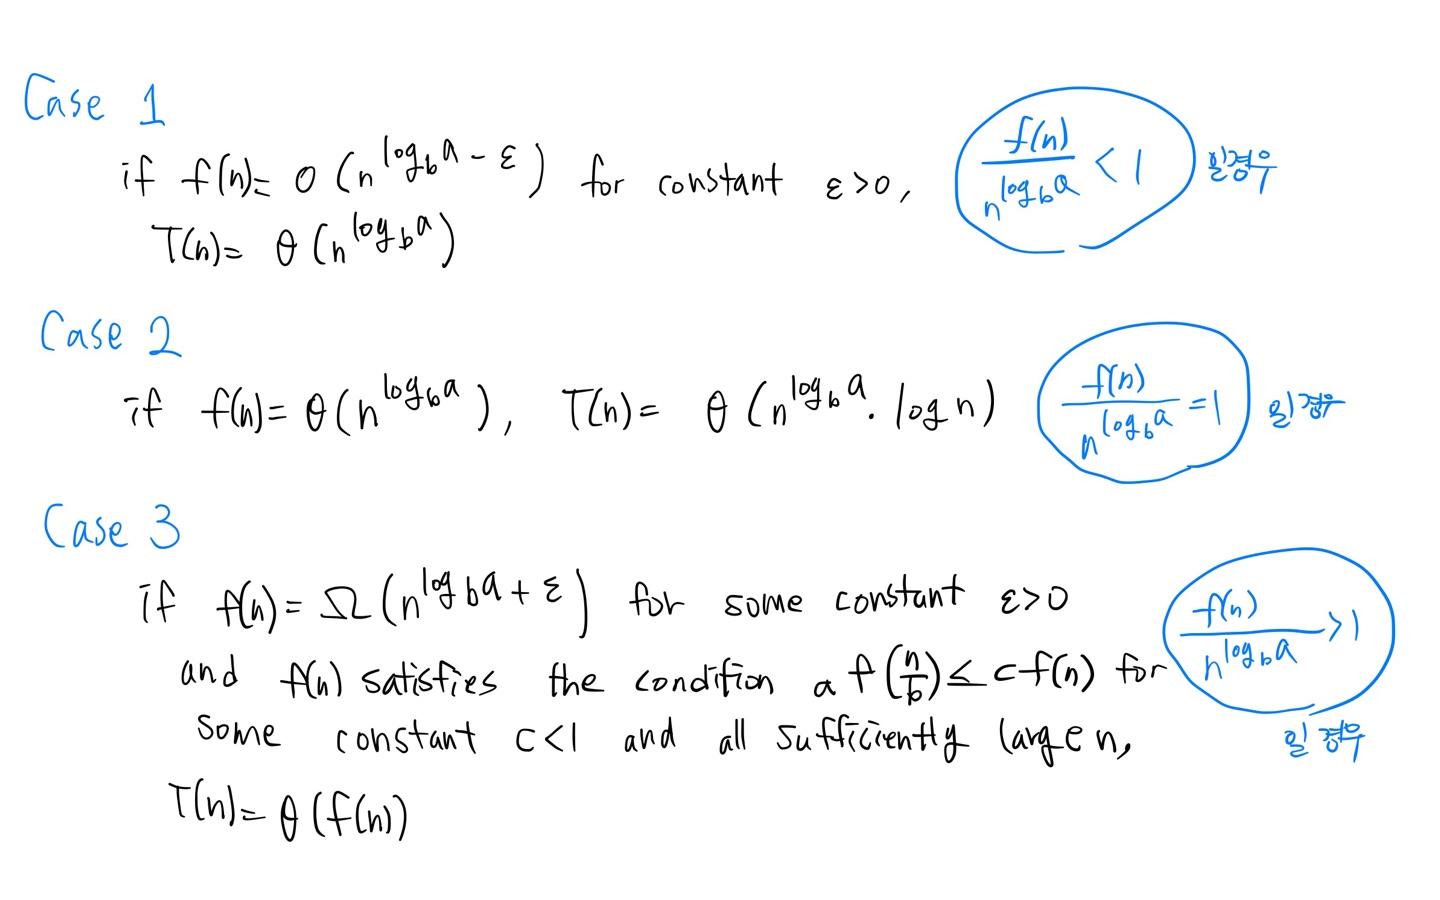 Case 1
if f(n)= O (n^{log_b a - ε}) for constant ε>0,
T(n)= θ (n^{log_b a})
f(n) / n^{log_b a} < 1 일경우
Case 2
if f(n)= θ(n^{log_b a}), T(n)= θ (n^{log_b a} · log n)
f(n) / n^{log_b a} = 1 일 경우
Case 3
if f(n)= Ω (n^{log_b a + ε}) for some constant ε>0
and f(n) satisfies the condition a f(n/b) ≤ c f(n) for
some constant c<1 and all sufficiently large n,
T(n)= θ (f(n))
f(n) / n^{log_b a} > 1
일 경우